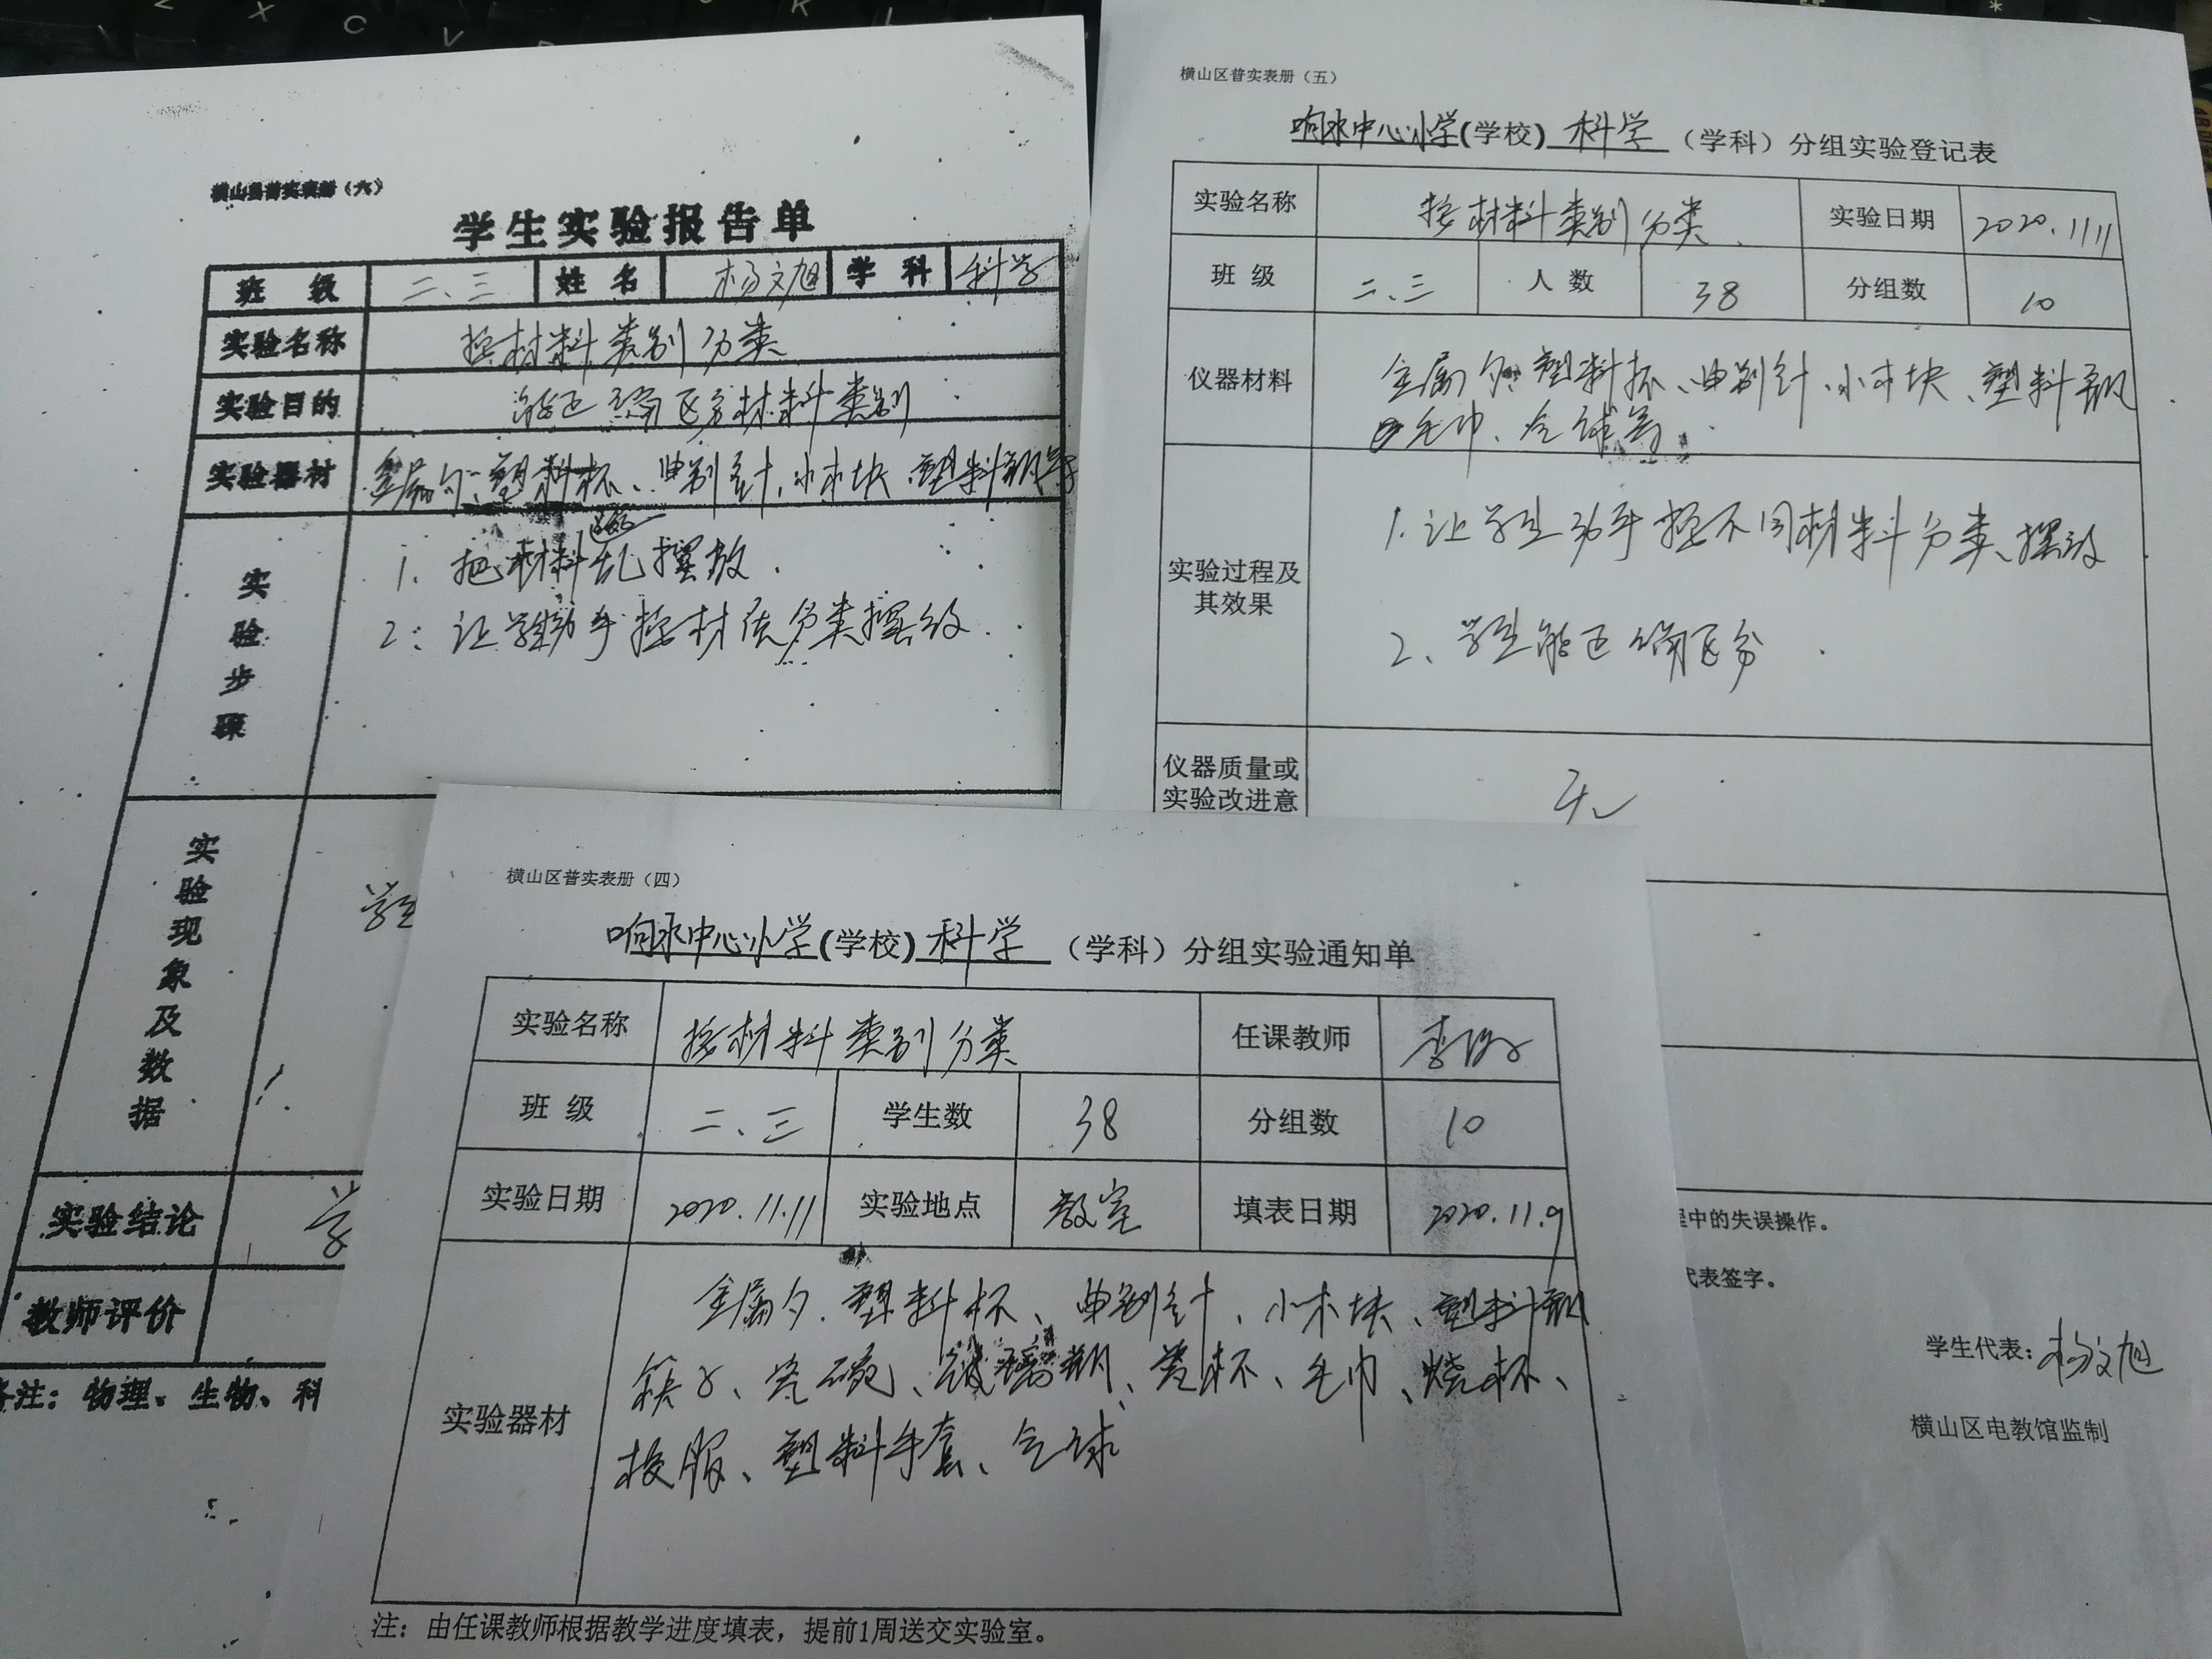 横山县普实表册（六）
学生实验报告单
班 级 二、三 姓 名 杨文旭 学 科 科学
实验名称 按材料类别分类
实验目的 能正确区分材料类别
实验器材 金属勺、塑料杯、曲别针、小木块、塑料瓶等
实验步骤
1. 把材料乱摆放.
2. 让学生动手按材质分类摆放.
实验现象及数据
学生
实验结论 学
教师评价
备注：物理、生物、科
横山区普实表册（五）
响水中心小学(学校) 科学 （学科）分组实验登记表
实验名称 按材料类别分类 实验日期 2020.11.11
班 级 二、三 人 数 38 分组数 10
仪器材料 金属勺、塑料杯、曲别针、小木块、塑料瓶
毛巾、气球等.
实验过程及
其效果
1. 让学生动手按不同材料分类、摆放
2、学生能正确区分.
仪器质量或
实验改进意
无
程中的失误操作。
代表签字。
学生代表：杨文旭
横山区电教馆监制
横山区普实表册（四）
响水中心小学(学校) 科学 （学科）分组实验通知单
实验名称 按材料类别分类 任课教师 李
班 级 二、三 学生数 38 分组数 10
实验日期 2020.11.11 实验地点 教室 填表日期 2020.11.9
实验器材 金属勺、塑料杯、曲别针、小木块、塑料瓶
筷子、瓷碗、玻璃瓶、瓷杯、毛巾、烧杯、
校服、塑料手套、气球
注：由任课教师根据教学进度填表，提前1周送交实验室。